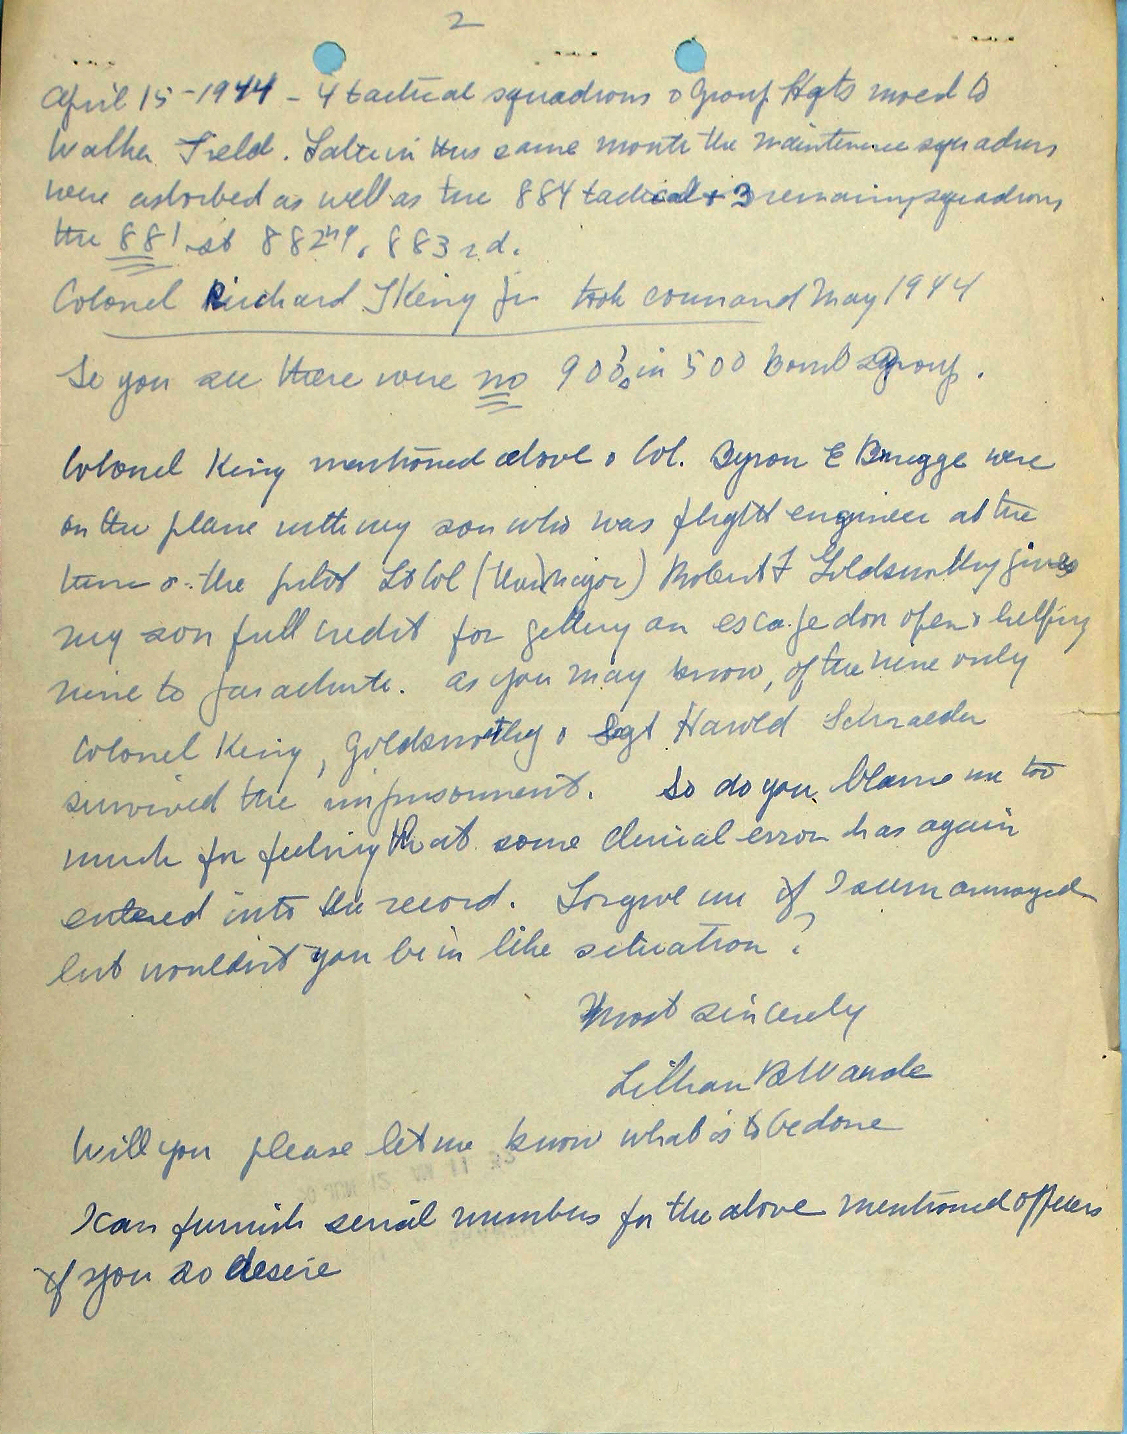 2
April 15-1944 - 4 tactical squadrons & Group Hqts moved to
Walker Field. Later in this same month the maintenance squadrons
were absorbed as well as the 884 tactical + 3 remaining squadrons
the 881 st 882nd, 883rd.
Colonel Richard T King Jr took command May 1944
So you see there were no 900's in 500 Bomb Group.
Colonel King mentioned above & Col. Byron E Brugge were
on the plane with my son who was flight engineer at the
time & the pilot Lt Col (then major) Robert F Goldsworthy gives
my son full credit for getting an escape door open & helping
nine to parachute. As you may know, of the nine only
Colonel King, Goldsworthy & Sgt Harold Schraeder
survived the imprisonment. So do you blame me too
much for feeling that some clerical error has again
entered into the record. Forgive me if I seem annoyed
but wouldn't you be in like situation?
Most sincerely
Lillian B Warde
Will you please let me know what is to be done
I can furnish serial numbers for the above mentioned officers
if you so desire